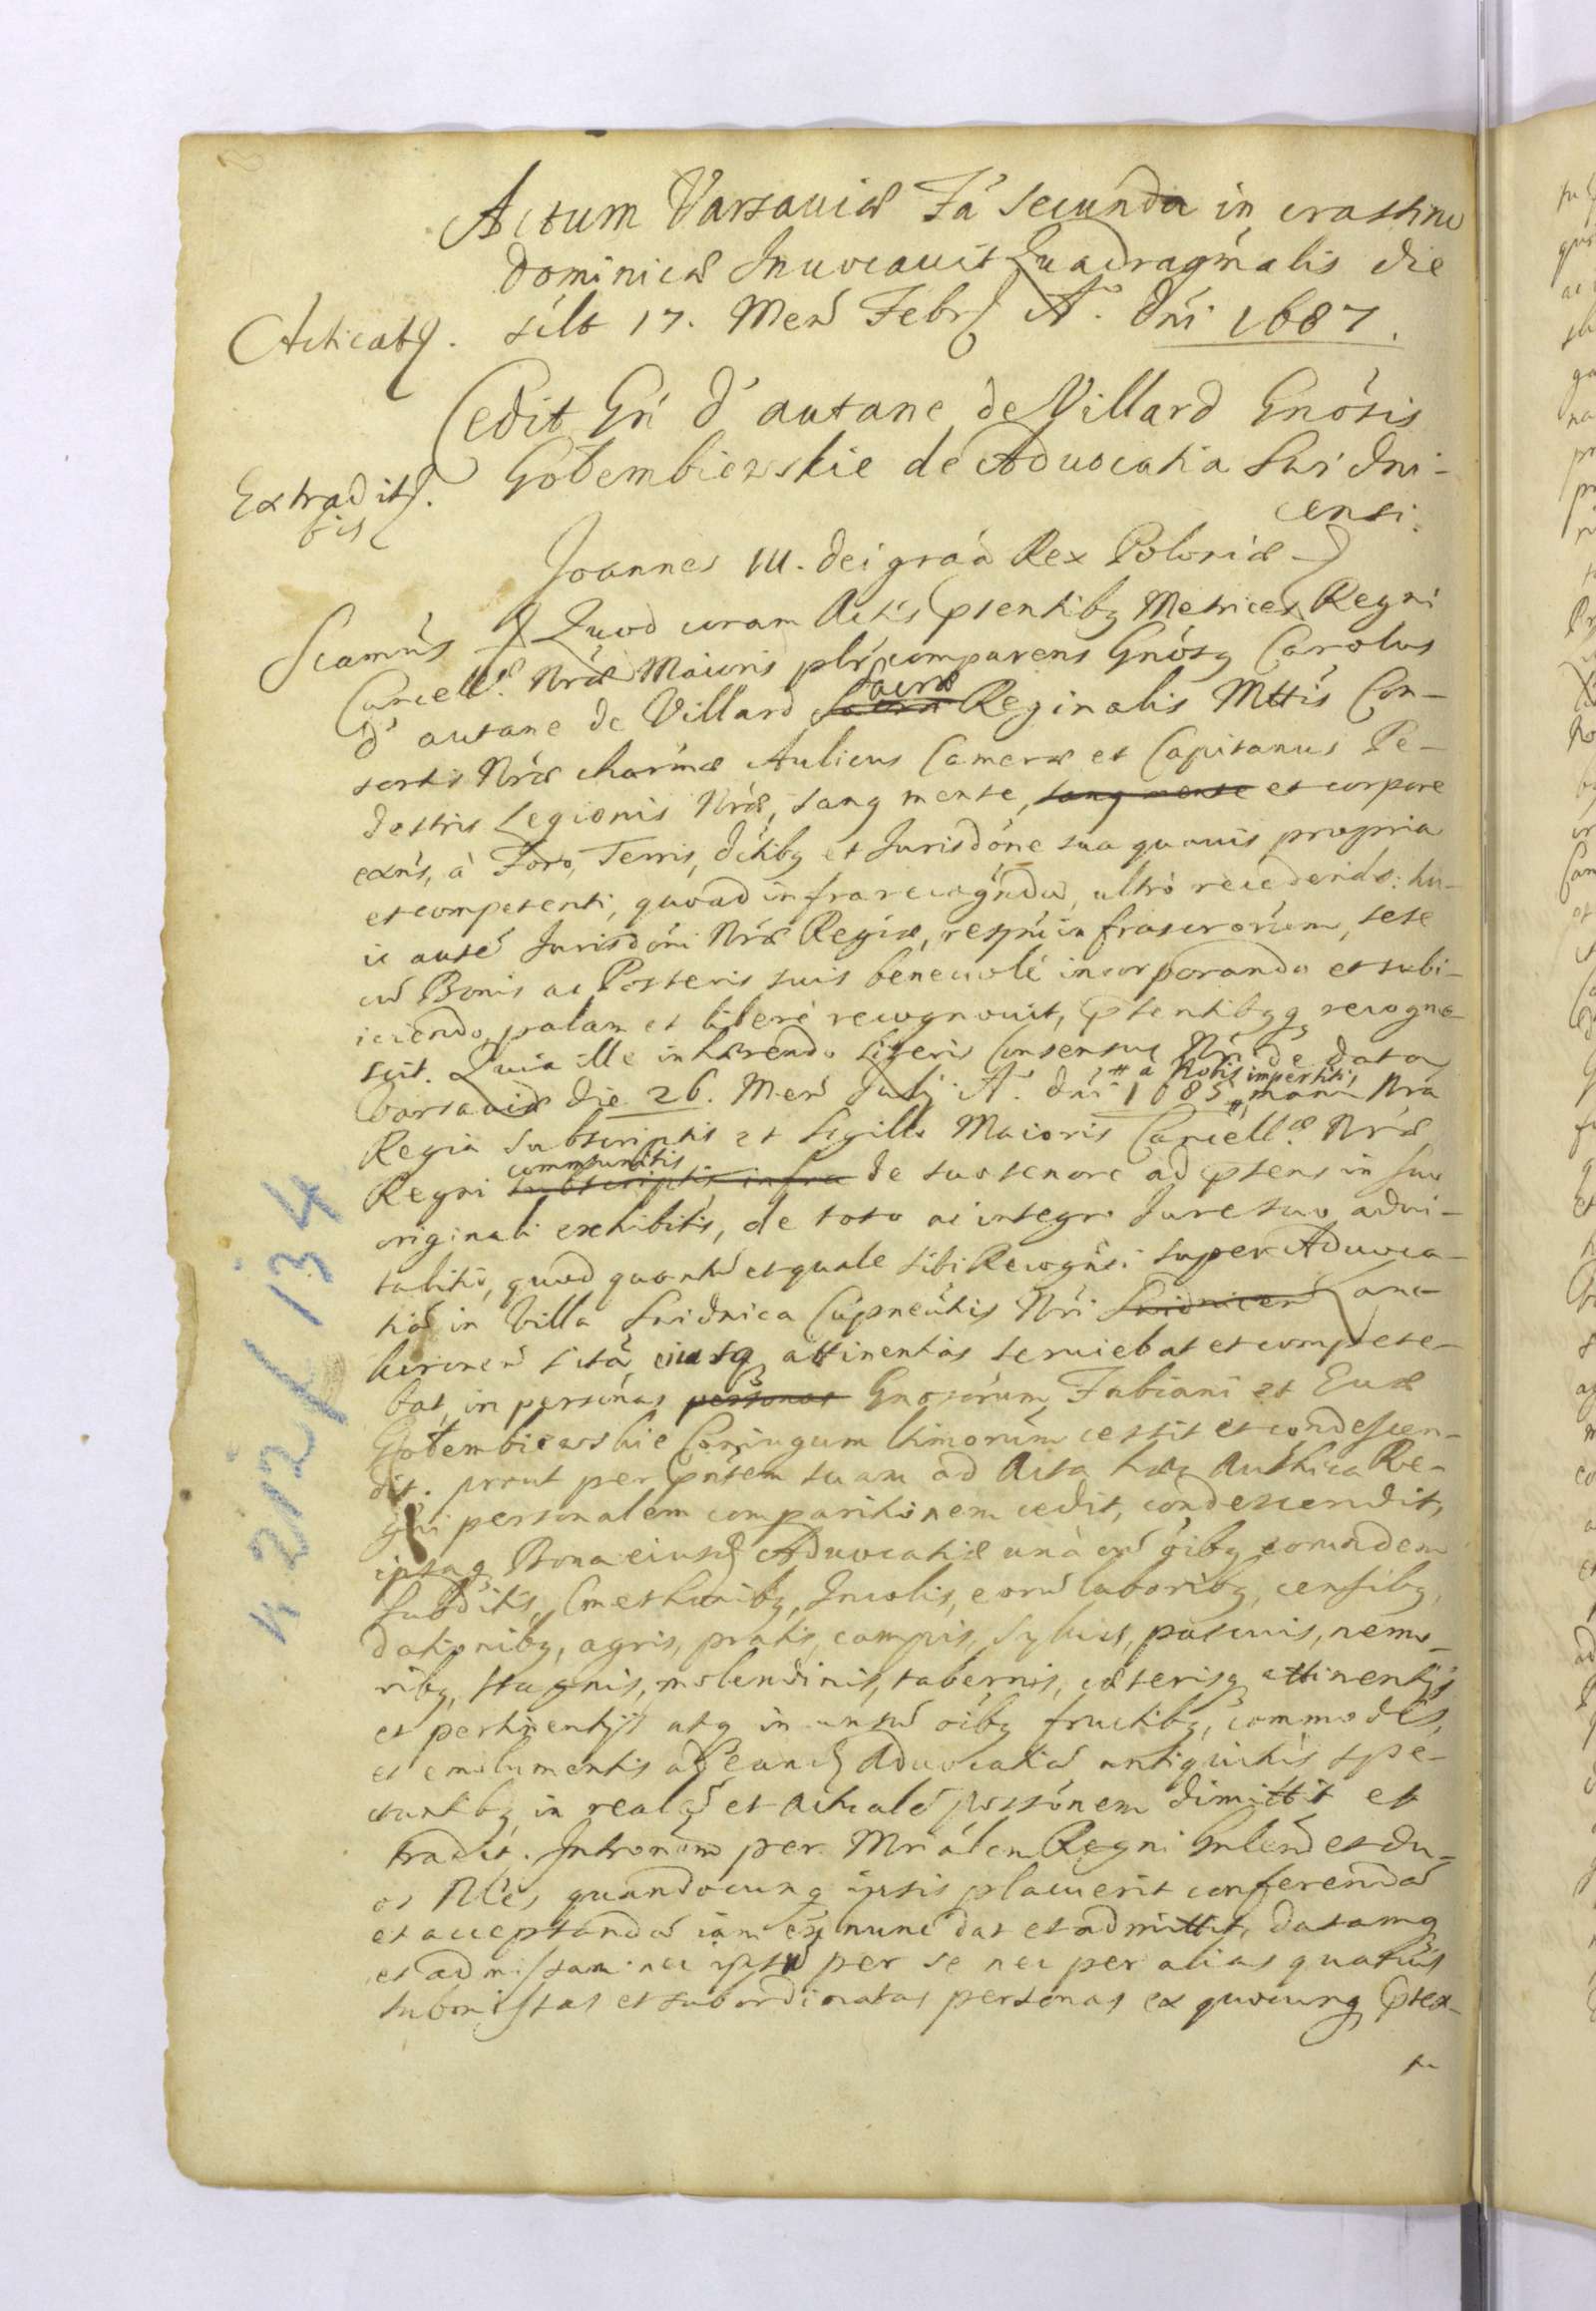 Actum Varsaviæ Fa secunda in crastino
Dominicæ Invocavit Quadragmalis die
Acticatq. silt 17. Mens Febr A. Dni 1687.
Cedit Gn d'autane de Villard Gnosis
Extradit. bis Gołembiewskie de Advocatia Snidni-
censi.
Joannes III. Dei graa Rex Poloniæ
Scamus Quod coram Actis pntentibq Metrices Regni
Cancell. Nræ Maioris plr comparens Gnosq Carolus
d'autane de Villard Sacræ Reginalis Mttis Con-
sortis Nræ charmæ Aulicus Cameræ et Capitanus Pe-
destris Legionis Nræ, sanq mente, sanq mente et corpore
exns, à Foro, Terris, dctibq et Jurisdone sua quavis propria
et competenti, quoad infra recognda, ultrò recedendo: hu-
ic auté Jurisdoni Nræ Regiæ, respni infrascrorum, sese
cu Bonis ac Posteris suis benevolé incorporando et subi-
iciendo, palam et liberé recognovit, pntentibqq recogno-
scit. Quia ille inhærendo literis Consensus Nri de data
Varsaviæ die 26. Mens Julij A. Dni 1685 # a Nobis impertitis, manu Nra
Regia subscriptis et Sigillo Maioris Cancellæ Nræ
Regni subscriptis, infra communitis de suo tenore ad ptens in suo
originali exhibitis, de toto ac integro Jure suo advi-
talitio, quod quantu et quale sibi Recognsi super Advoca-
tia in Villa Snidnica Capneutis Nri Snidnicen Sanc-
sita, eiusq attinentias serviebat et compete-
bat, in personas personas Gnosorum Fabiani et Evæ
Gołembiewskie Coniugum ltimorum cessit et condescen-
dit. prout per pnsem suam ad Acta hæc Authica Re-
gni personalem comparitionem cedit, condescendit,
ipsaq Bona eiusd Advocatiæ unà cu oibq eorundem
Subditis, Cmethonibq, Incolis, eoru laboribq, censibq,
dationibq, agris, pratis, campis, sylvis, pascuis, nemo-
ribq, stagnis, molendinis, tabernis, cæterisq attinentijs
et pertinentijs atq in untu oibq fructibq, commodis,
et emolumentis ad eand Advocatia antiquitus spe-
ctantibq in realé et actualé possonem dimittit et
tradit. Intromom per Mrialem Regni Gnlem et du-
os Nles quandocunq ipsis placuerit conferenda
et acceptanda iam ex nunc dat et admittit, datamq
et admissam nec ipse per se nec per alias quasvis
submissas et subordinatas personas ex quocunq ptex-
tu
K 212/134